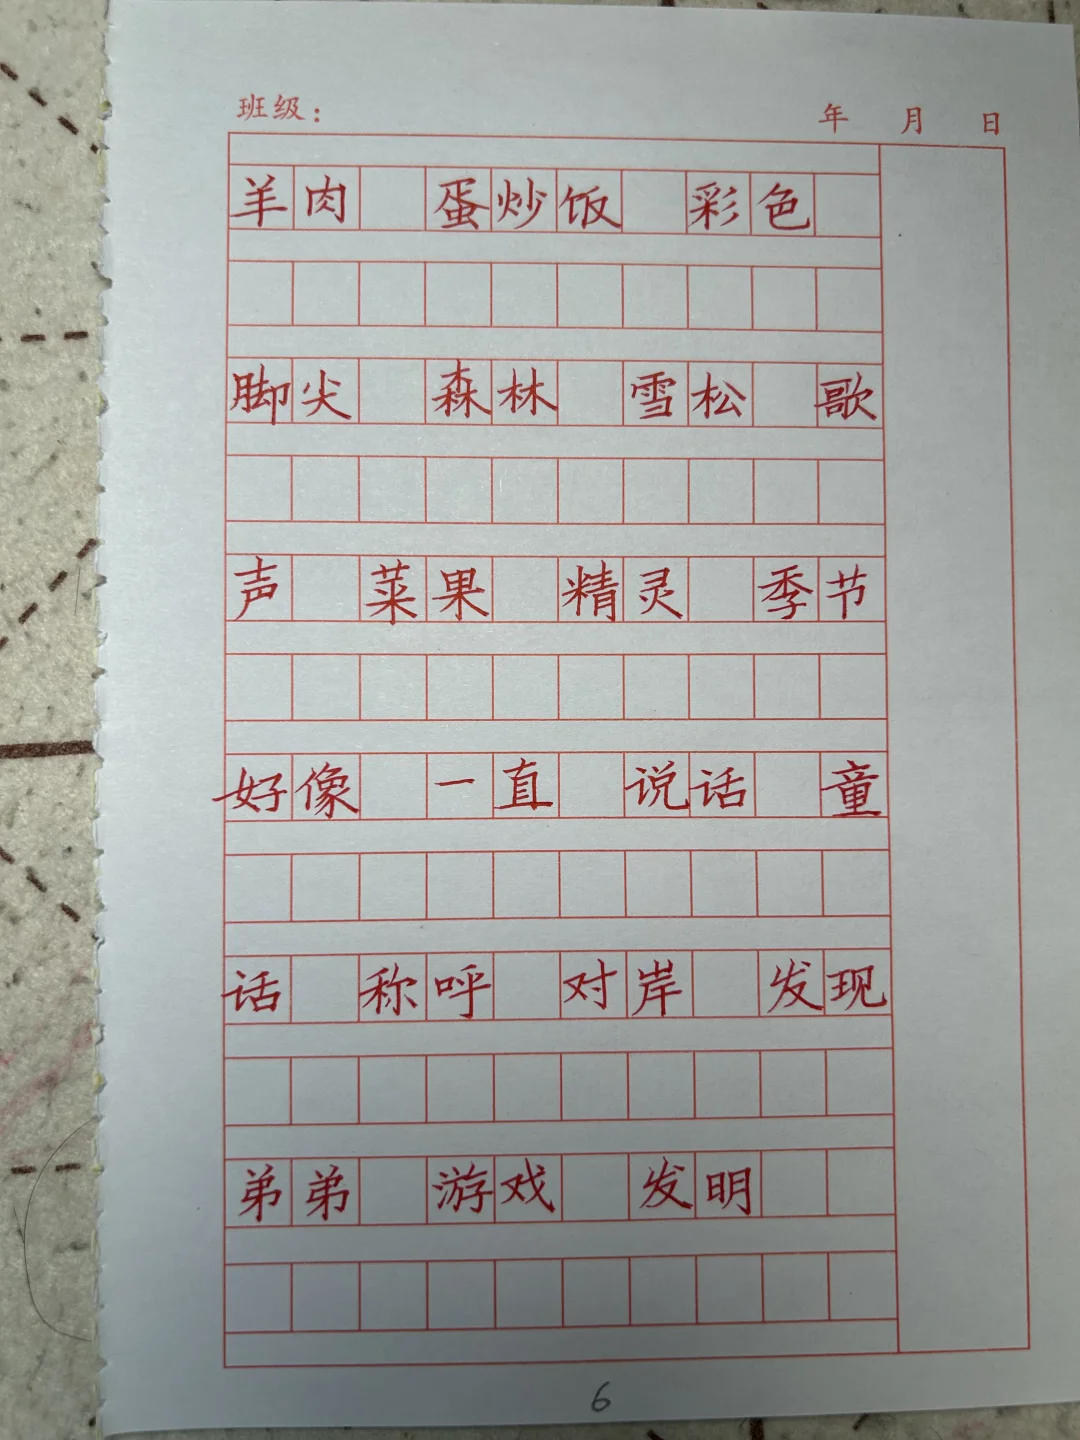 班级： 年 月 日
羊肉 蛋炒饭 彩色
脚尖 森林 雪松 歌
声 菜果 精灵 季节
好像 一直 说话 童
话 称呼 对岸 发现
弟弟 游戏 发明
6